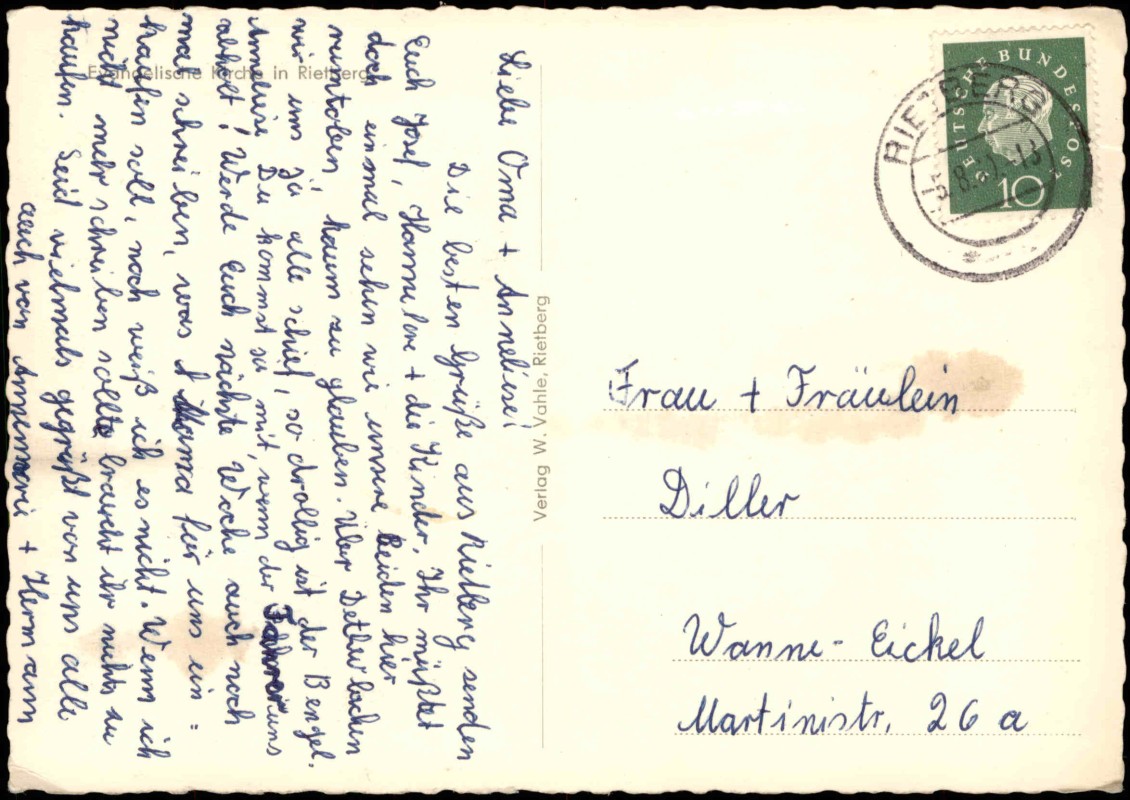 Evangelische Kirche in Rietberg
Liebe Oma + Anneliese!
Die besten Grüße aus Rietberg senden
Euch Josef, Hannelore + die Kinder. Ihr müßtet
doch einmal sehen wie unsere beiden hier
rumtoben, kaum zu glauben. Über Detlev lachen
wir uns ja alle schief, so drollig ist der Bengel.
Anneliese Du kommst ja mit, wenn der Fahrer uns
abholt! Werde Euch nächste Woche auch noch
mal schreiben, was Mama für uns ein =
kaufen soll, noch weiß ich es nicht. Wenn ich
nicht mehr schreiben sollte braucht ihr nichts zu
kaufen. Seid vielmals gegrüßt von uns alle
auch von Annemarie + Hermann
Verlag W. Vahle, Rietberg
DEUTSCHE BUNDESPOST
10
RIETBERG
Frau + Fräulein
Diller
Wanne-Eickel
Martinistr. 26 a